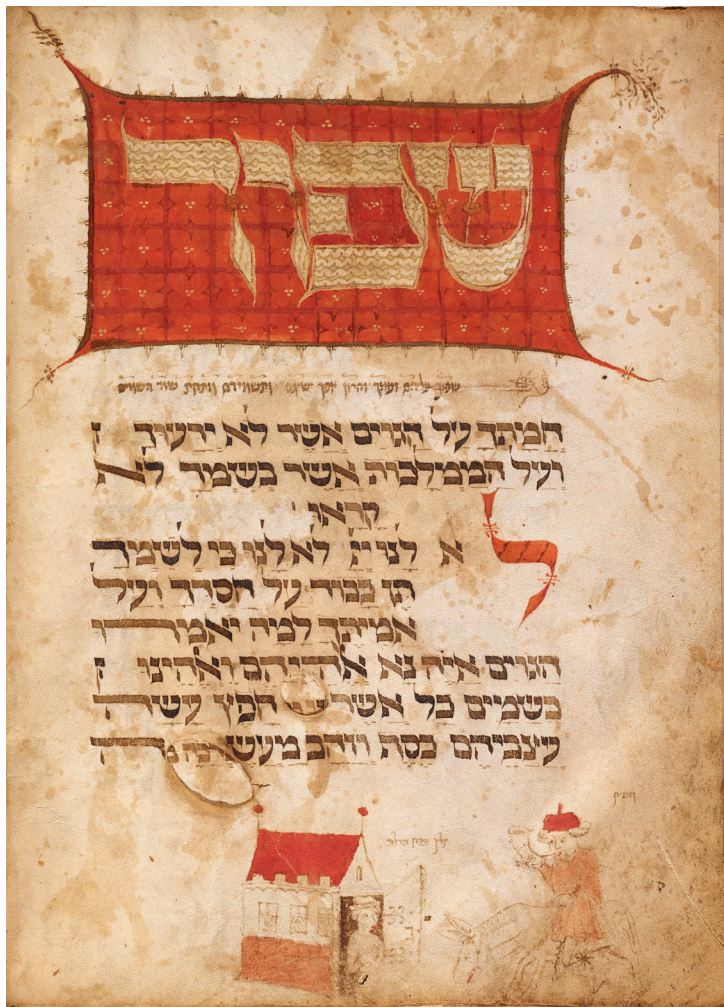 שפוך
שפוך עליהם זעמך וחרון אפך ישיגם ותשמידם מתחת שמי השמים
חמתך על הגוים אשר לא ידעוך
ועל הממלכות אשר בשמך לא
קראו
לא לנו יי לא לנו כי לשמך
תן כבוד על חסדך ועל
אמיתך למה יאמרו
הגוים איה נא אלהיהם ואלהינו
בשמים כל אשר חפץ עשה
עצביהם כסף וזהב מעשה